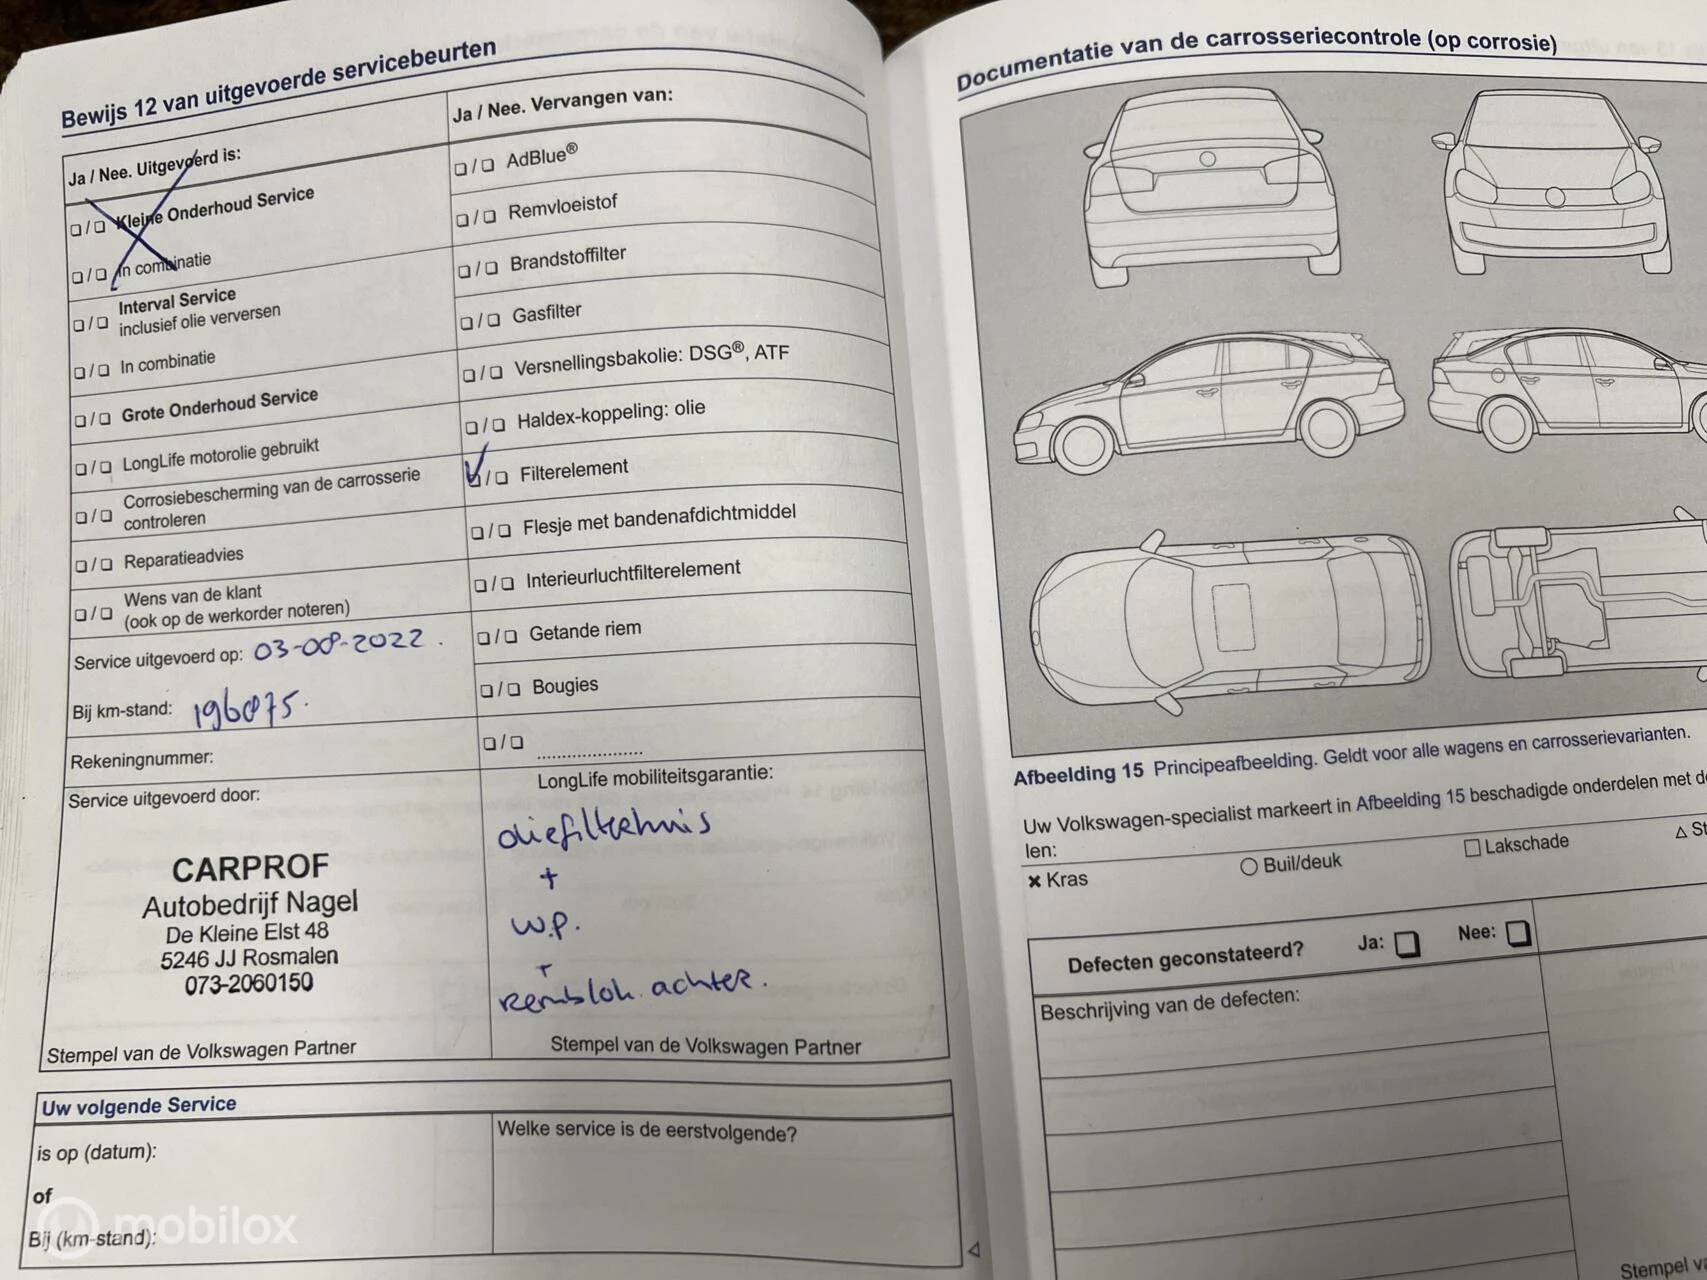 Bewijs 12 van uitgevoerde servicebeurten
Ja / Nee. Uitgevoerd is:
❑/❑ Kleine Onderhoud Service
❑/❑ In combinatie
❑/❑ Interval Service
inclusief olie verversen
❑/❑ In combinatie
❑/❑ Grote Onderhoud Service
❑/❑ LongLife motorolie gebruikt
❑/❑ Corrosiebescherming van de carrosserie
controleren
❑/❑ Reparatieadvies
❑/❑ Wens van de klant
(ook op de werkorder noteren)
Service uitgevoerd op: 03-08-2022.
Bij km-stand: 196075.
Rekeningnummer:
Service uitgevoerd door:
CARPROF
Autobedrijf Nagel
De Kleine Elst 48
5246 JJ Rosmalen
073-2060150
Stempel van de Volkswagen Partner
Ja / Nee. Vervangen van:
❑/❑ AdBlue®
❑/❑ Remvloeistof
❑/❑ Brandstoffilter
❑/❑ Gasfilter
❑/❑ Versnellingsbakolie: DSG®, ATF
❑/❑ Haldex-koppeling: olie
❑/❑ Filterelement
❑/❑ Flesje met bandenafdichtmiddel
❑/❑ Interieurluchtfilterelement
❑/❑ Getande riem
❑/❑ Bougies
❑/❑ ....................
LongLife mobiliteitsgarantie:
oliefilterhuis
+
W.P.
+
remblok. achter.
Stempel van de Volkswagen Partner
Uw volgende Service
is op (datum):
of
Bij (km-stand):
Welke service is de eerstvolgende?
mobilox
Documentatie van de carrosseriecontrole (op corrosie)
Afbeelding 15 Principeafbeelding. Geldt voor alle wagens en carrosserievarianten.
Uw Volkswagen-specialist markeert in Afbeelding 15 beschadigde onderdelen met
len:
✖ Kras ○ Buil/deuk □ Lakschade △ St
Defecten geconstateerd? Ja: ❑ Nee: ❑
Beschrijving van de defecten:
Stempel